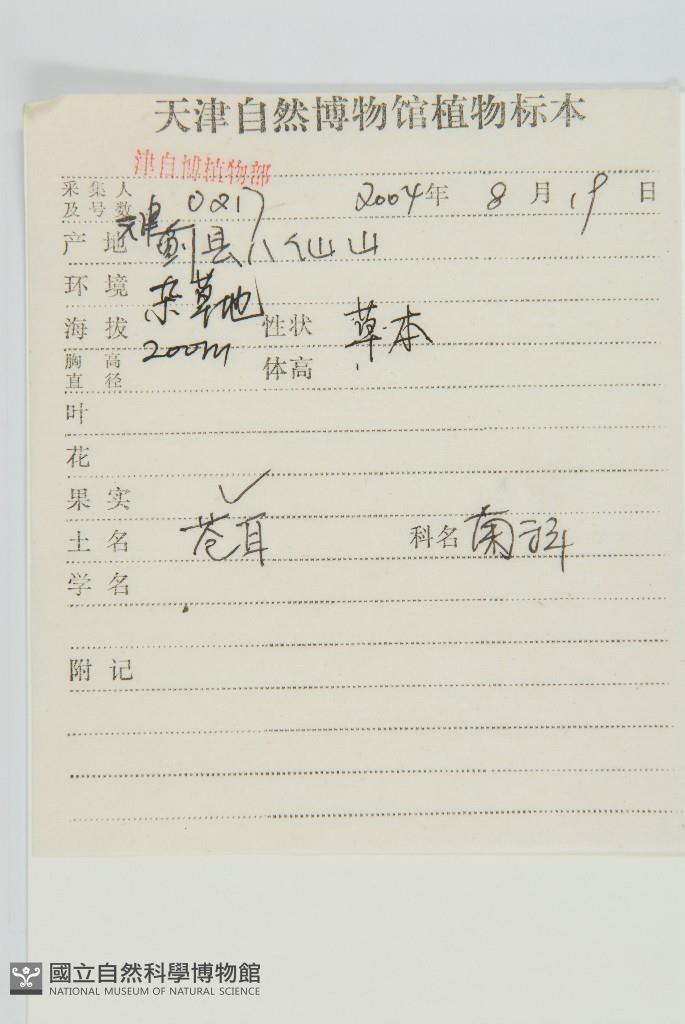 天津自然博物馆植物标本
津自博植物部
采集人及号数 0817 2004年 8月19日
产地 天津蓟县八仙山
环境 杂草地
海拔 200m 性状 草本
胸高直径 体高
叶
花
果实 ✓
土名 苍耳 科名 菊科
学名
附记
國立自然科學博物館
NATIONAL MUSEUM OF NATURAL SCIENCE